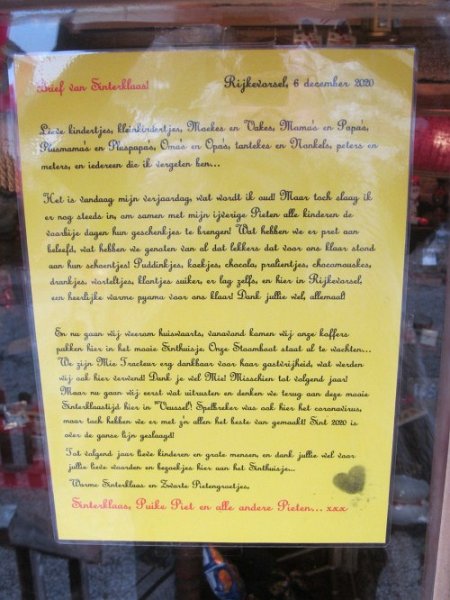 Brief van Sinterklaas! Rijkevorsel, 6 december 2020
Lieve kindertjes, kleinkindertjes, Moekes en Vakes, Mama's en Papa's,
Plusmama's en Pluspapa's, Oma's en Opa's, tantekes en Nonkels, peters en
meters, en iedereen die ik vergeten ben...
Het is vandaag mijn verjaardag, wat wordt ik oud! Maar toch slaag ik
er nog steeds in, om samen met mijn ijverige Pieten alle kinderen de
voorbije dagen hun geschenkjes te brengen! Wat hebben we er pret aan
beleefd, wat hebben we genoten van al dat lekkers dat voor ons klaar stond
aan hun schoentjes! Puddinkjes, koekjes, chocola, pralientjes, chocomouskes,
drankjes, worteltjes, klontjes suiker, er lag zelfs, en hier in Rijkevorsel,
een heerlijke warme pyama voor ons klaar! Dank jullie wel, allemaal!
En nu gaan wij weerom huiswaarts, vanavond komen wij onze koffers
pakken hier in het mooie Sinthuisje. Onze Stoomboot staat al te wachten...
We zijn Mis Tracteur erg dankbaar voor haar gastvrijheid, wat werden
wij ook hier verwend! Dank je wel Mie! Misschien tot volgend jaar!
Maar nu gaan wij eerst wat uitrusten en denken we terug aan deze mooie
Sinterklaastijd hier in "Vuussel"! Spelbreker was ook hier het coronavirus,
maar toch hebben we er met z'n allen het beste van gemaakt! Sint 2020 is
over de ganse lijn geslaagd!
Tot volgend jaar lieve kinderen en grote mensen, en dank jullie wel voor
jullie lieve woorden en bezoekjes hier aan het Sinthuisje...
Warme Sinterklaas en Zwarte Pietengroetjes,
Sinterklaas, Puike Piet en alle andere Pieten... xxx